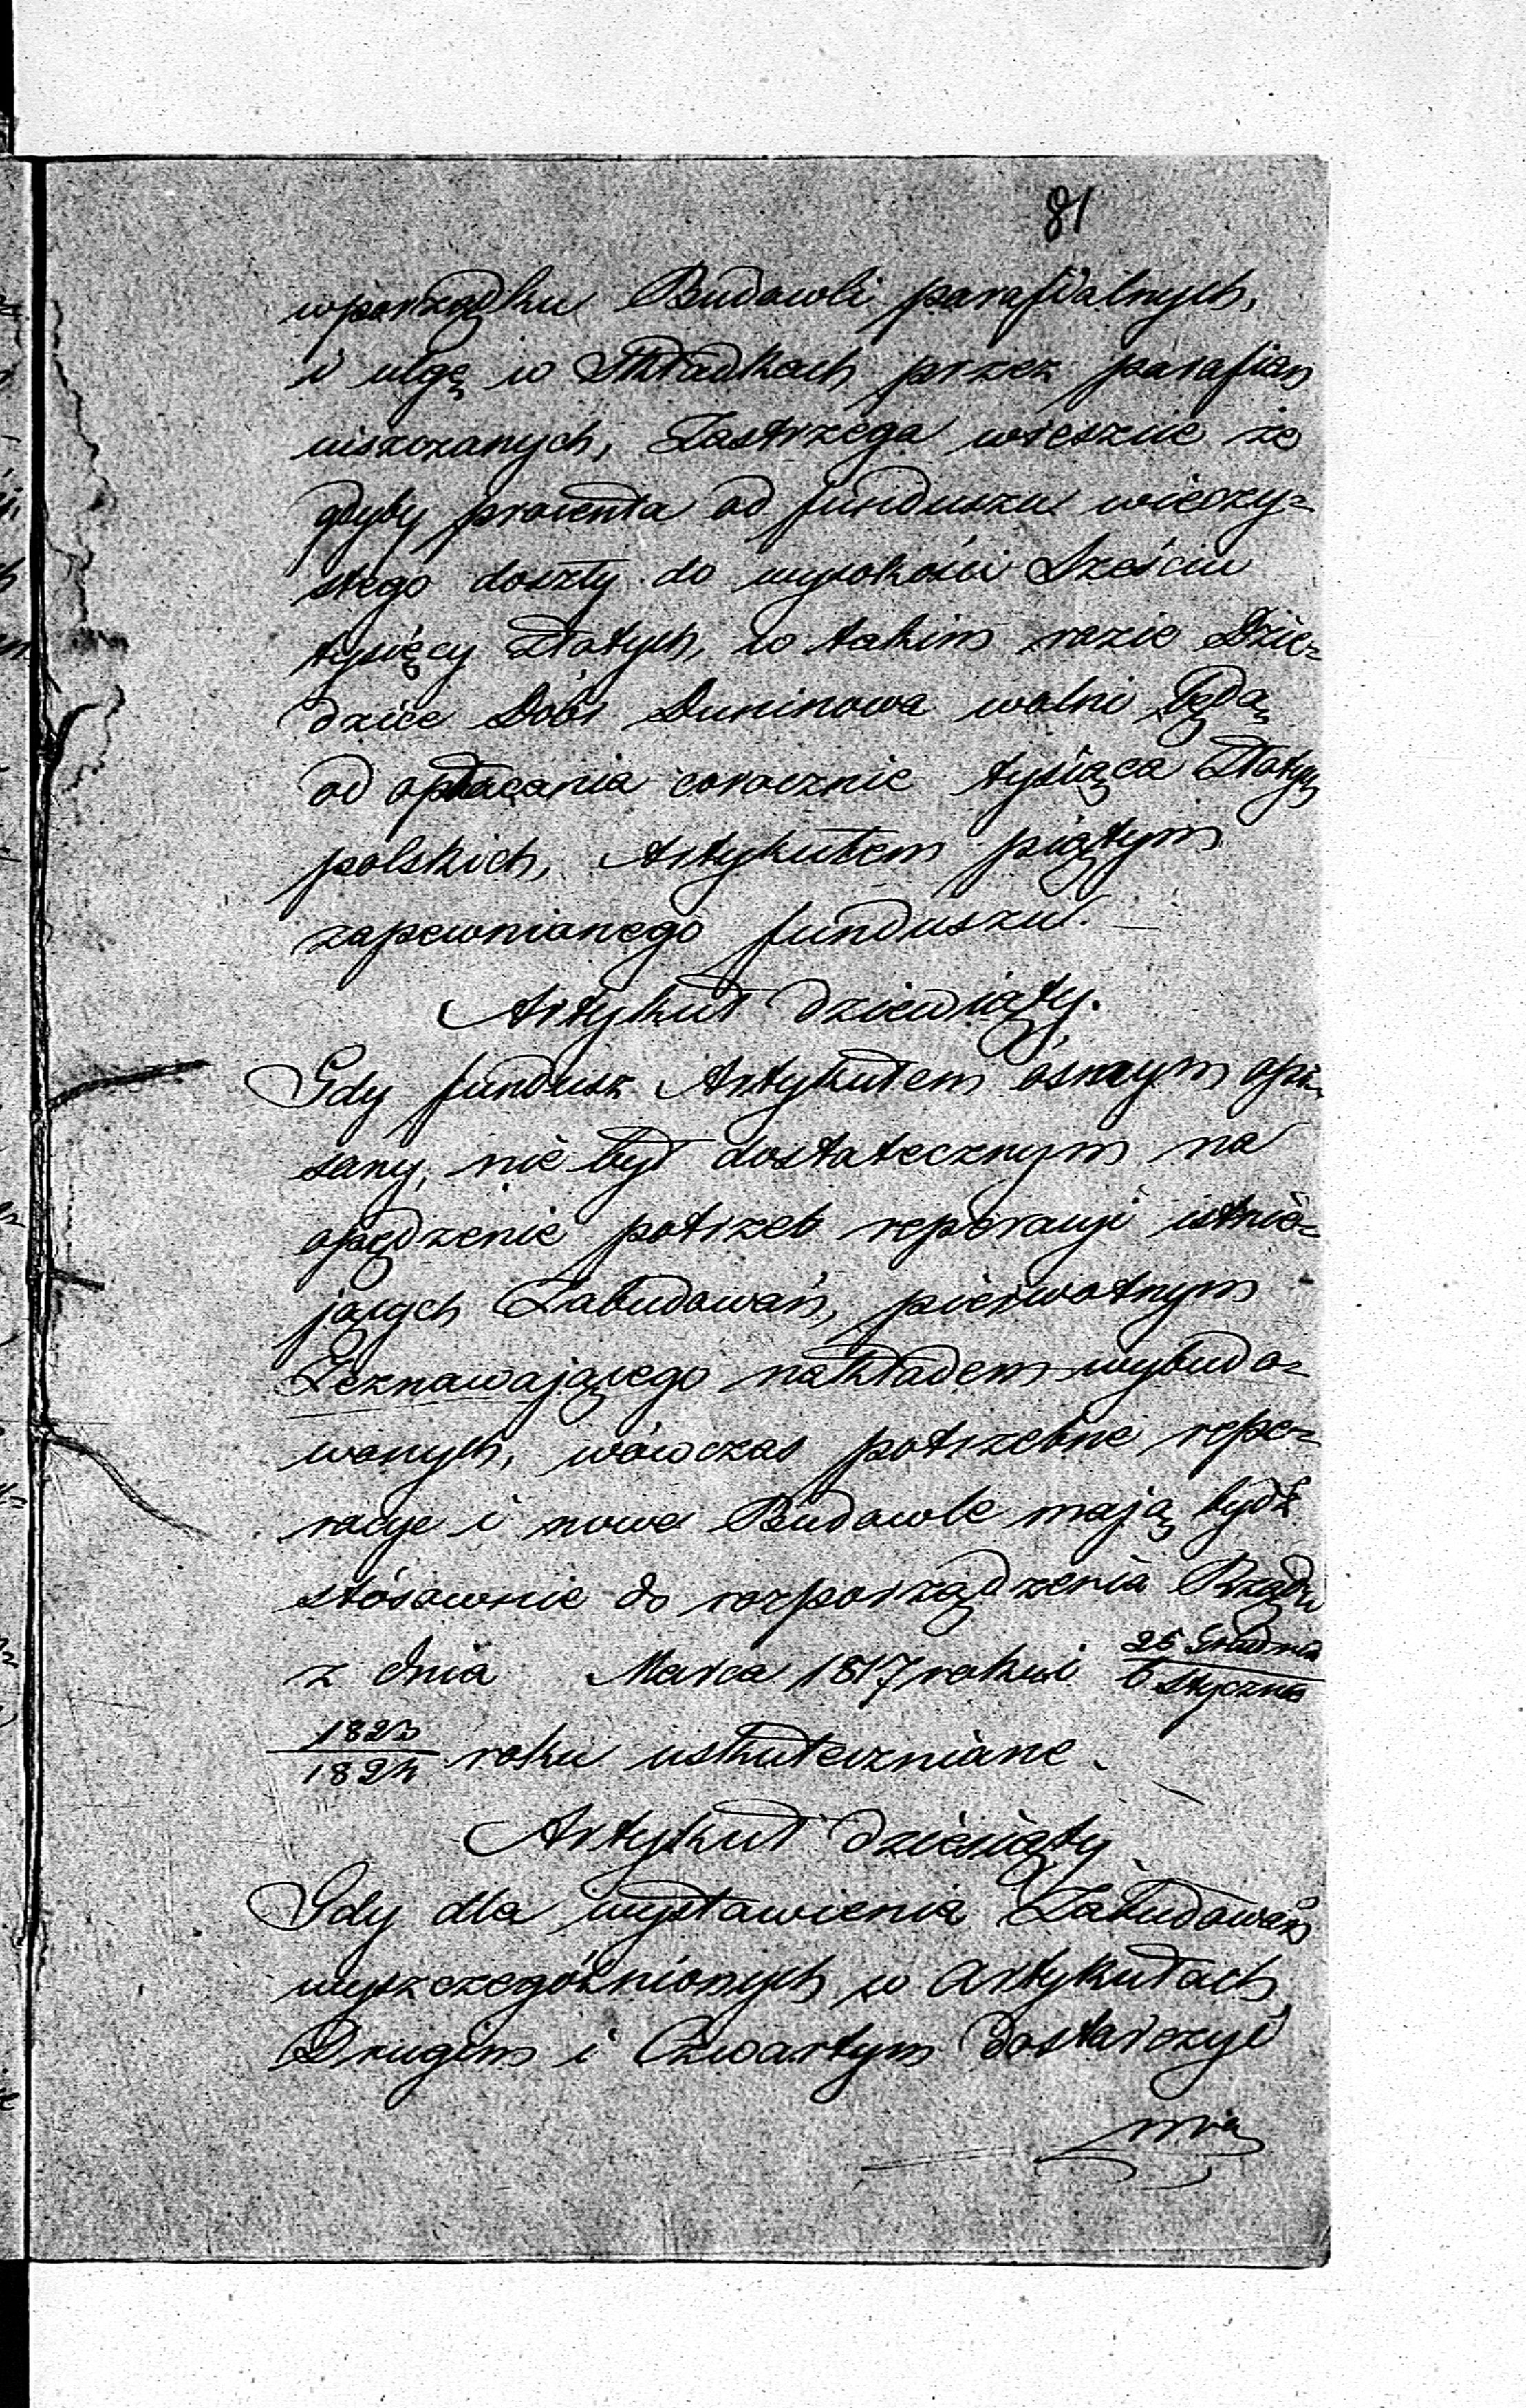 81
w porządku Budowli parafialnych,
i ulgę w Składkach przez parafian
uiszczanych, Zastrzega wreszcie że
gdyby procenta od funduszu wieczy=
stego doszły do wysokości Sześciu
tysięcy Złotych, w takim razie Dzie=
dzice Dóbr Duninowa wolni będą
od opłacania corocznie tysiąca Złotych
polskich, Artykułem piątym
zapewnianego funduszu.—
Artykuł dziewiąty.
Gdy fundusz Artykułem ósmym opi=
sany, nie był dostatecznym na
opędzenie potrzeb reperacyi istnie=
jących Zabudowań, pierwotnym
Zeznawającego nakładem wybudo=
wanych, wówczas potrzebne repe=
racye i nowe Budowle mają bydź
stósownie do rozporządzenia Rządu
z dnia Marca 1817 roku i 25 Grudnia / 6 Stycznia
1823 / 1824 roku uskuteczniane.
Artykuł dziesiąty
Gdy dla wystawienia Zabudowań
wyszczególnionych w Artykułach
Drugim i Czwartym dostarczyć